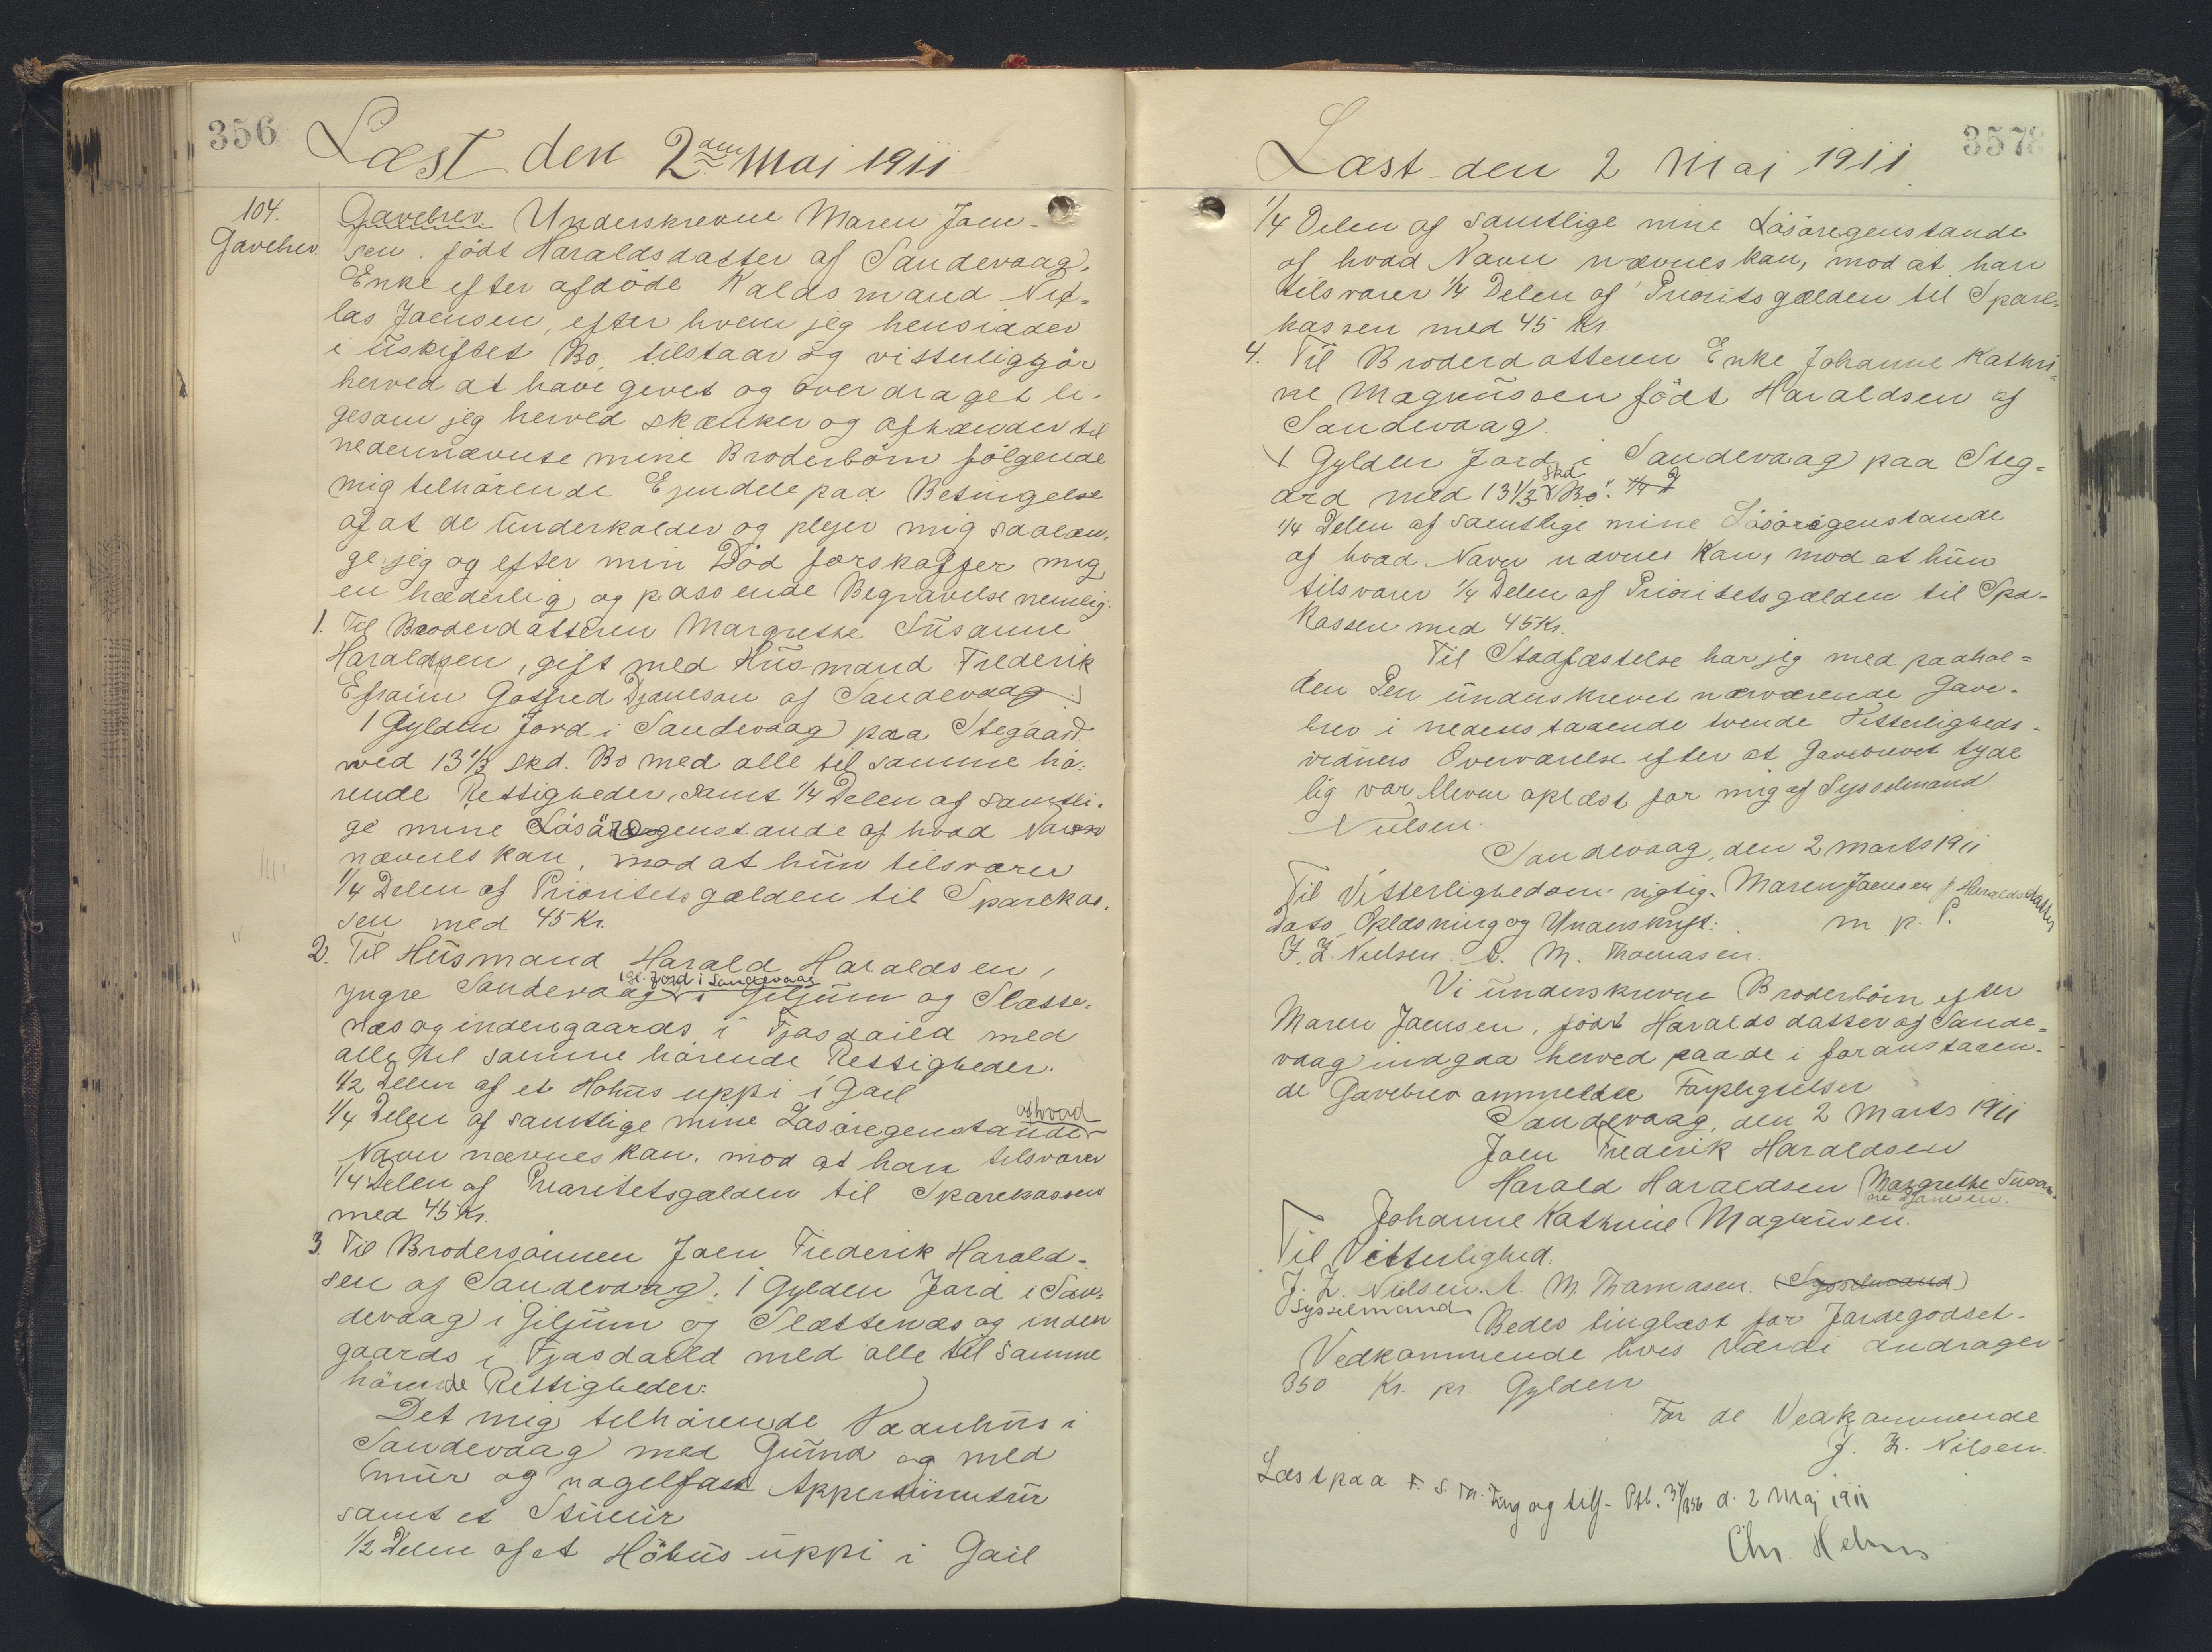 356
Læst den 2den Maj 1911
104.
Gavebrev.
Gavebrev Underskrevne Maren Joen-
sen. födt Haraldsdatter af Sandevaag,
Enke efter afdöde Kaldsmand Nik-
las Joensen, efter hvem jeg hensidder
i üskiftet Bo, tilstaar og vitterliggjör
herved at have givet og overdraget li-
gesom jeg herved skænker og afhænder til
nedennævnte mine Broderbörn fölgende
mig tilhörende Ejendele paa Betingelse
af at de ünderholder og plejer mig saalæn-
ge jeg og efter min Död forskaffer mig
en hæderlig og passende Begravelse nemlig.
1. Til Broderdatteren Margrethe Süsanne
Haraldsen, gift med Hüsmand Frederik
Efraim Gotfred Djoneson af Sandevaag.
1 Gylden Jord i Sandevaag paa Stegaard
med 13 1/3 skd. Bo med alle til samme hö-
rende Rettigheder, samt 1/4 Delen af samtli-
ge mine Lösöregenstande af hvad Navn
nævnes kan, mod at hün tilsvarer
1/4 Delen af Prioritetsgælden til Sparekas-
sen med 45 Kr.
2. Til Hüsmand Harald Haraldsen,
yngre Sandevaag 1 gl. Jord i Sandevaag i Giljum og Slætte-
næs og indengaards i Fjasdaild med
alle til samme hörende Rettigheder.
1/2 Delen af et Höhüs uppi i Gail
1/4 Delen af samtlige mine Lösöregenstande af hvad
Navn nævnes kan, mod at han tilsvarer
1/4 Delen af Prioritetsgælden til Sparekassen
med 45 Kr.
3. Til Brodersönnen Joen Frederik Harald-
sen af Sandevaag. 1 Gylden Jord i San-
devaag i Giljum og Slættenæs og inden
gaards i Fjasdaild med alle til samme
hörende Rettigheder.
Det mig tilhörende Vaanhüs i
Sandevaag med Gründ og med
mür og nagelfast Appertinintür
samt et
1/2 Delen af et Höhüs uppi i Gail
357
Læst den 2 Maj 1911
1/4 Delen af samtlige mine Lösöregenstande
af hvad Navn nævnes kan, mod at han
tilsvarer 1/4 Delen af Prioritsgælden til Spare-
kassen med 45 Kr.
4. Til Broderdatteren Enke Johanne Kathri-
ne Magnüssen födt Haraldsen af
Sandevaag.
1 Gylden Jord i Sandevaag paa Steg-
ard med 13 1/3 skd Bo. 1/4 D
1/4 Delen af samtlige mine Lösöregenstande
af hvad Navn nævnes kan, mod at hün
tilsvarer 1/4 Delen af Prioritetsgælden til Spa-
kassen med 45 Kr.
Til Stadfæstelse har jeg med paahol-
den Pen ünderskrevet nærværende Gave-
brev i nedenstaaende tvende Vitterligheds-
vidners Overværelse efter at Gavebrevet tyde
lig var bleven oplæst for mig af Sysselmand
Nielsen.
Sandevaag, den 2 Marts 1911
Til Vitterligheden rigtig. Maren Joensen f. Haraldsdatter
Dato, Oplæsning og Underskrift: m p. P.
J. Z. Nielsen. A. M. Thomasen.
Vi ünderskrevne Broderbörn efter
Maren Joensen, födt Haraldsdatter af Sande-
vaag indgaa herved paa de i foranstaaen-
de Gavebrev ommeldte Forpligtelser
Sandevaag, den 2 Marts 1911
Joen Frederik Haraldsen
Harald Haraldsen Margrethe Susan-
ne Djonesen.
Johanne Kathrine Magnüsen.
Til Vitterlighed.
J. Z. Nielsen. A. M. Thomasen. (Sysselmand)
Sysselmand
Bedes tinglæst for Jordegodset-
Vedkommende hvis Værdi andrager
350 Kr. pr. Gylden
For de Vedkommende
J. Z. Nilsen.
Læst paa F. S. M. Ting og tilf. Ptb. 3/356 d. 2 Maj 1911
Chr. Helms